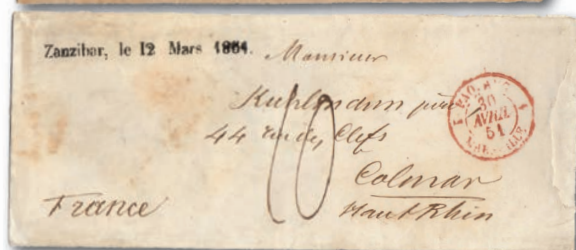 Zanzibar, le 12 Mars 1861.
Monsieur
père
44 rue des Clefs
Colmar
Haut Rhin
France
10
30
AVRIL
61